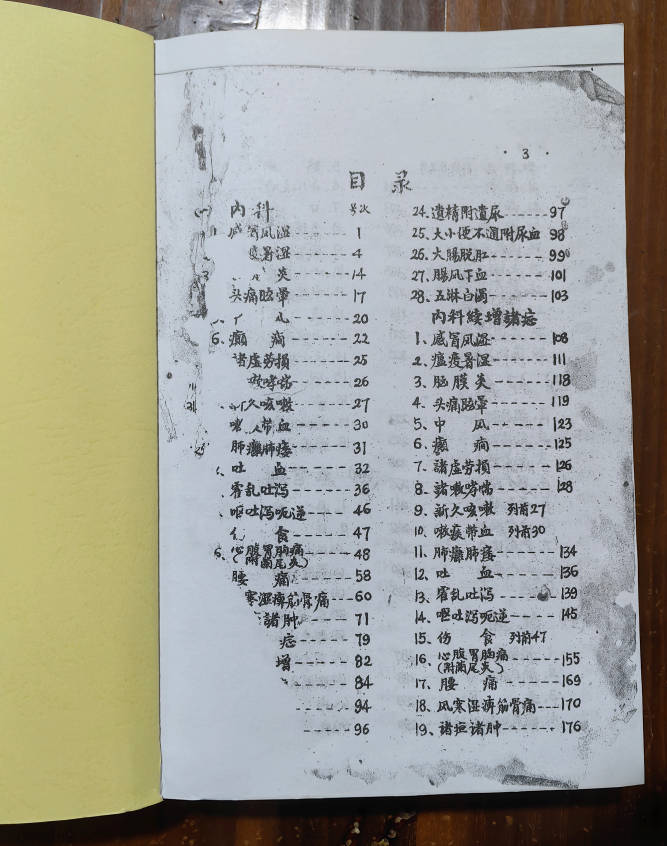 · 3 ·
目 录
内科 号次
感冒风湿------1
疫暑湿------4
炎------14
头痛眩晕------17
20
6. 癫 痫------22
諸虚劳損------25
嗽哮喘------26
新久咳嗽------27
嗽 带血------30
肺癰肺痿------31
吐 血------32
霍乱吐泻------36
呕吐泻呃逆------46
食------47
心腹胃胸痛
(附闌尾炎)------48
腰 痛------58
寒湿痹筋骨痛------60
諸肿------71
79
增------82
84
94
96
24. 遗精附遺尿------97
25、大小便不通附尿血 98
26、大腸脱肛------99
27、腸风下血------101
28、五淋白濁------103
内科续增諸症
1、感冒风湿------108
2、瘟疫暑湿------111
3、脑膜炎------118
4、头痛眩晕------119
5、中 风------123
6、癫 痫------125
7、諸虚劳損------126
8、諸嗽哮喘------128
9、新久咳嗽 列前27
10、嗽痰带血 列前30
11、肺癰肺痿------134
12、吐 血------136
13、霍乱吐泻------139
14、呕吐泻呃逆------145
15、伤 食 列前47
16、心腹胃胸痛
(附闌尾炎)------155
17、腰 痛------169
18、风寒湿痹筋骨痛---170
19、诸疸诸肿------176